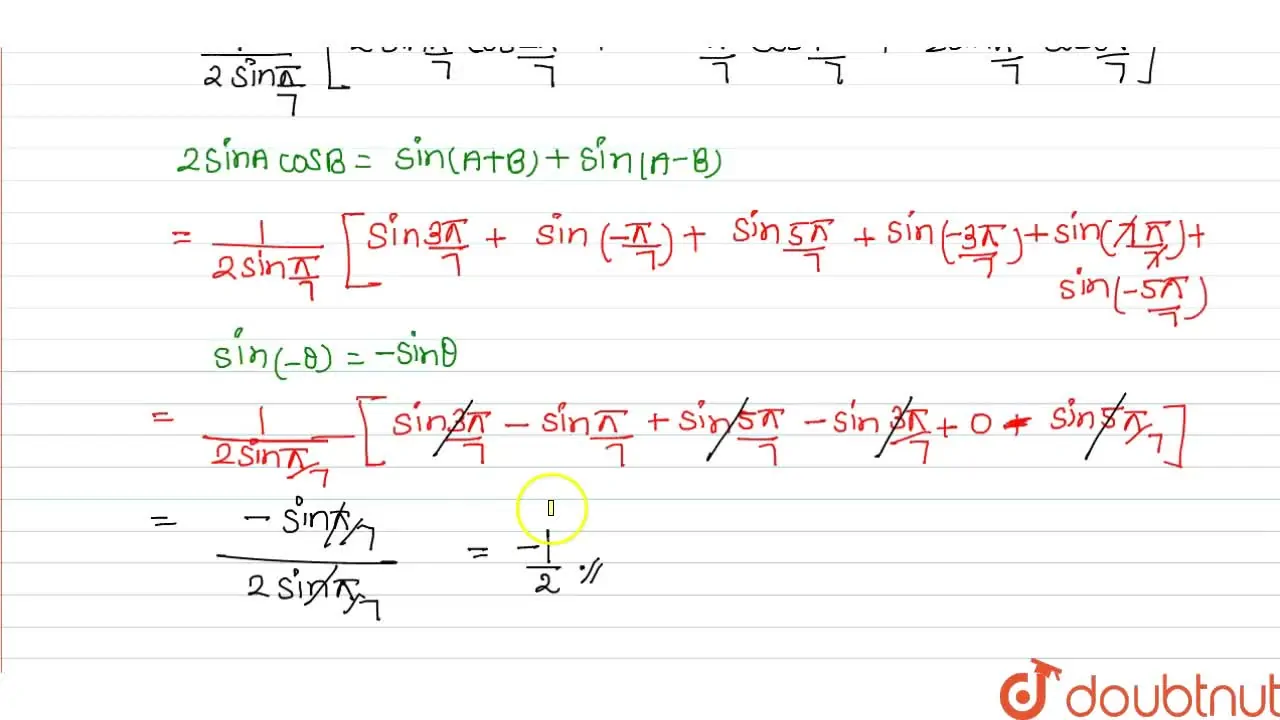 2 sin π/7 [ 2 sin π/7 cos 2π/7 + π/7 cos 4π/7 + 2 sin π/7 cos 6π/7 ]
2 sinA cosB = sin(A+B) + sin(A-B)
= 1/(2 sin π/7) [ sin 3π/7 + sin (-π/7) + sin 5π/7 + sin (-3π/7) + sin (7π/7) +
sin (-5π/7)
sin (-θ) = -sinθ
= 1/(2 sin π/7) [ sin 3π/7 - sin π/7 + sin 5π/7 - sin 3π/7 + 0 - sin 5π/7 ]
= - sin π/7 / 2 sin π/7 = -1/2 .//
doubtnut